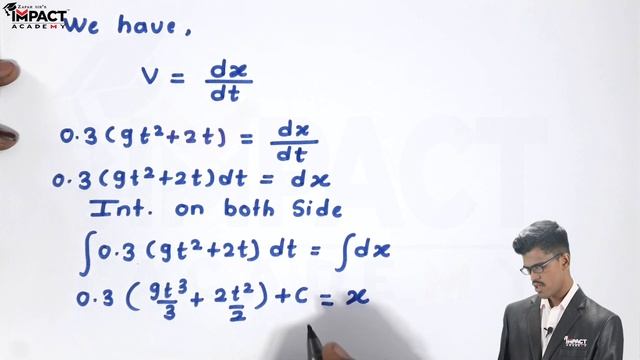 ZAFAR SIR'S
IMPACT
ACADEMY
We have,
V = dx/dt
0.3(9t²+2t) = dx/dt
0.3(9t²+2t)dt = dx
Int. on both Side
∫0.3(9t²+2t) dt = ∫dx
0.3(9t³/3 + 2t²/2) + C = x
IMPACT